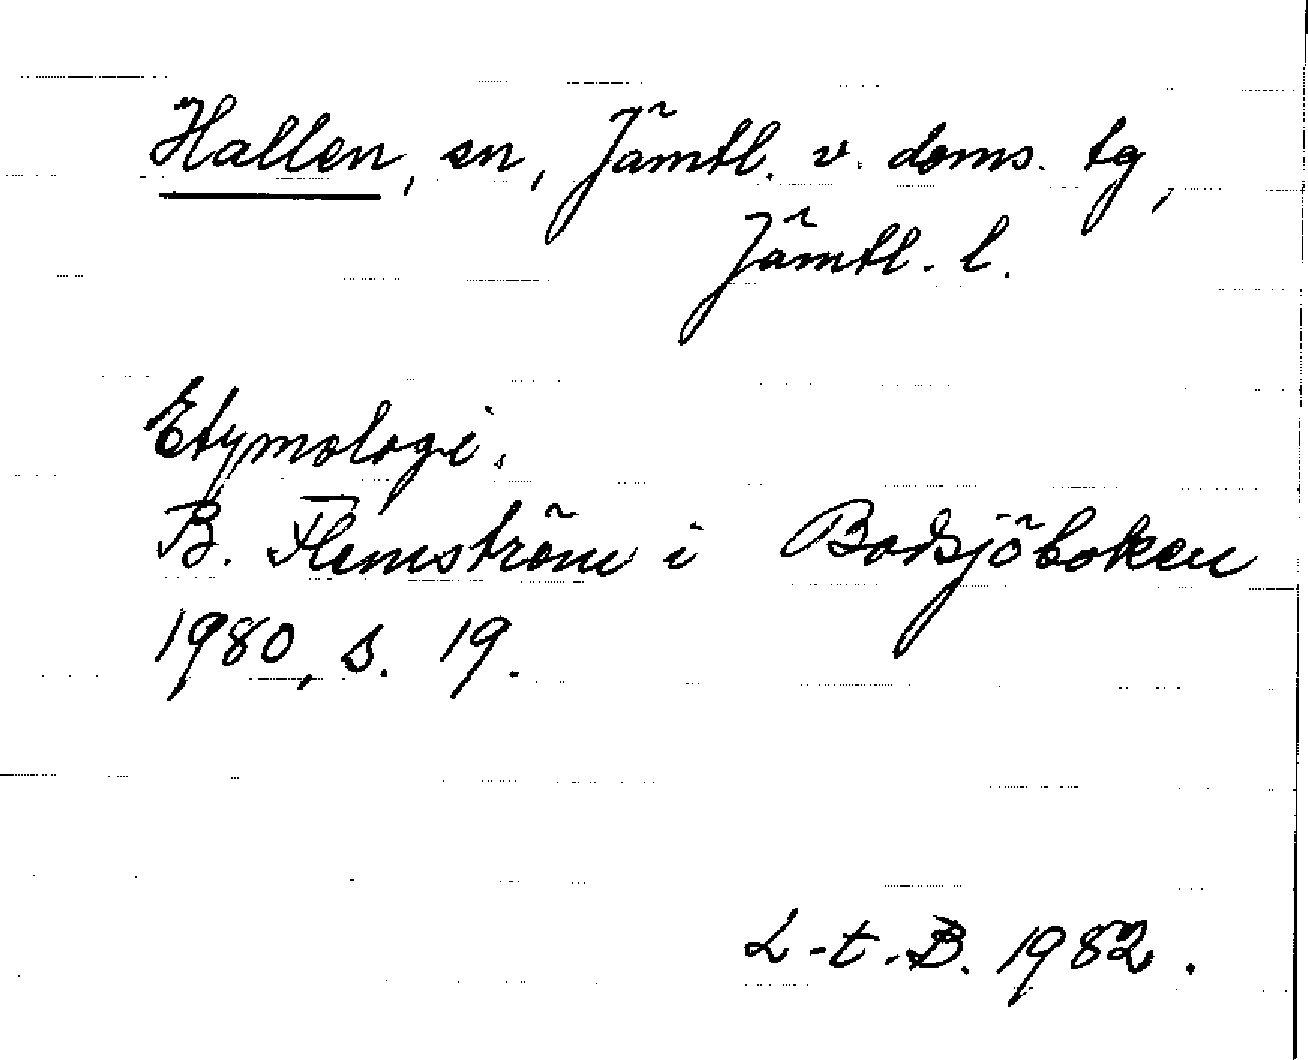 Hallen, sn, Jämtl. v. doms. tg,
Jämtl. l.
Etymologi.
B. Flemström i Bodsjöboken
1980, s. 19.
L-t.B. 1982.